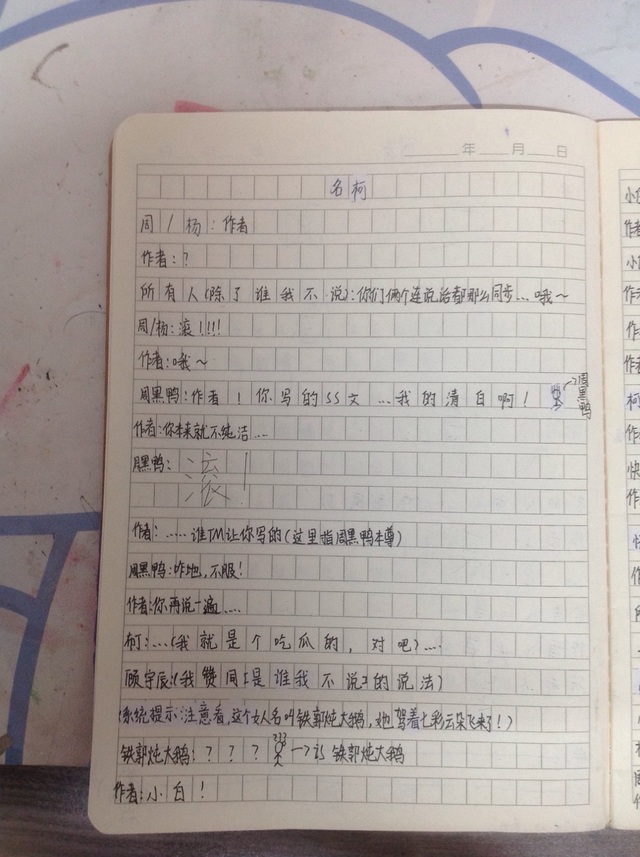 年 月 日
名柯
周/杨:作者
作者:?
所有人(除了谁我不说):你们俩个连说话都那么同步...哦~
周/杨:滚!!!!
作者:哦~
周黑鸭:作者!你写的SS文...我的清白啊!
周黑鸭
作者:你本来就不纯洁....
周黑鸭:滚!
作者:.....谁TM让你写的(这里指周黑鸭本尊)
周黑鸭:咋地,不服!
作者:你再说一遍....
柯:...(我就是个吃瓜的,对吧)....
顾宇辰:(我赞同[是谁我不说]的说法)
(系统提示:注意看,这个女人名叫铁郭炖大鹅,她驾着七彩云朵飞来了!)
铁郭炖大鹅:???→is 铁郭炖大鹅
作者:小白!
小
作者
小
作者
作
作者
柯
作
快
作